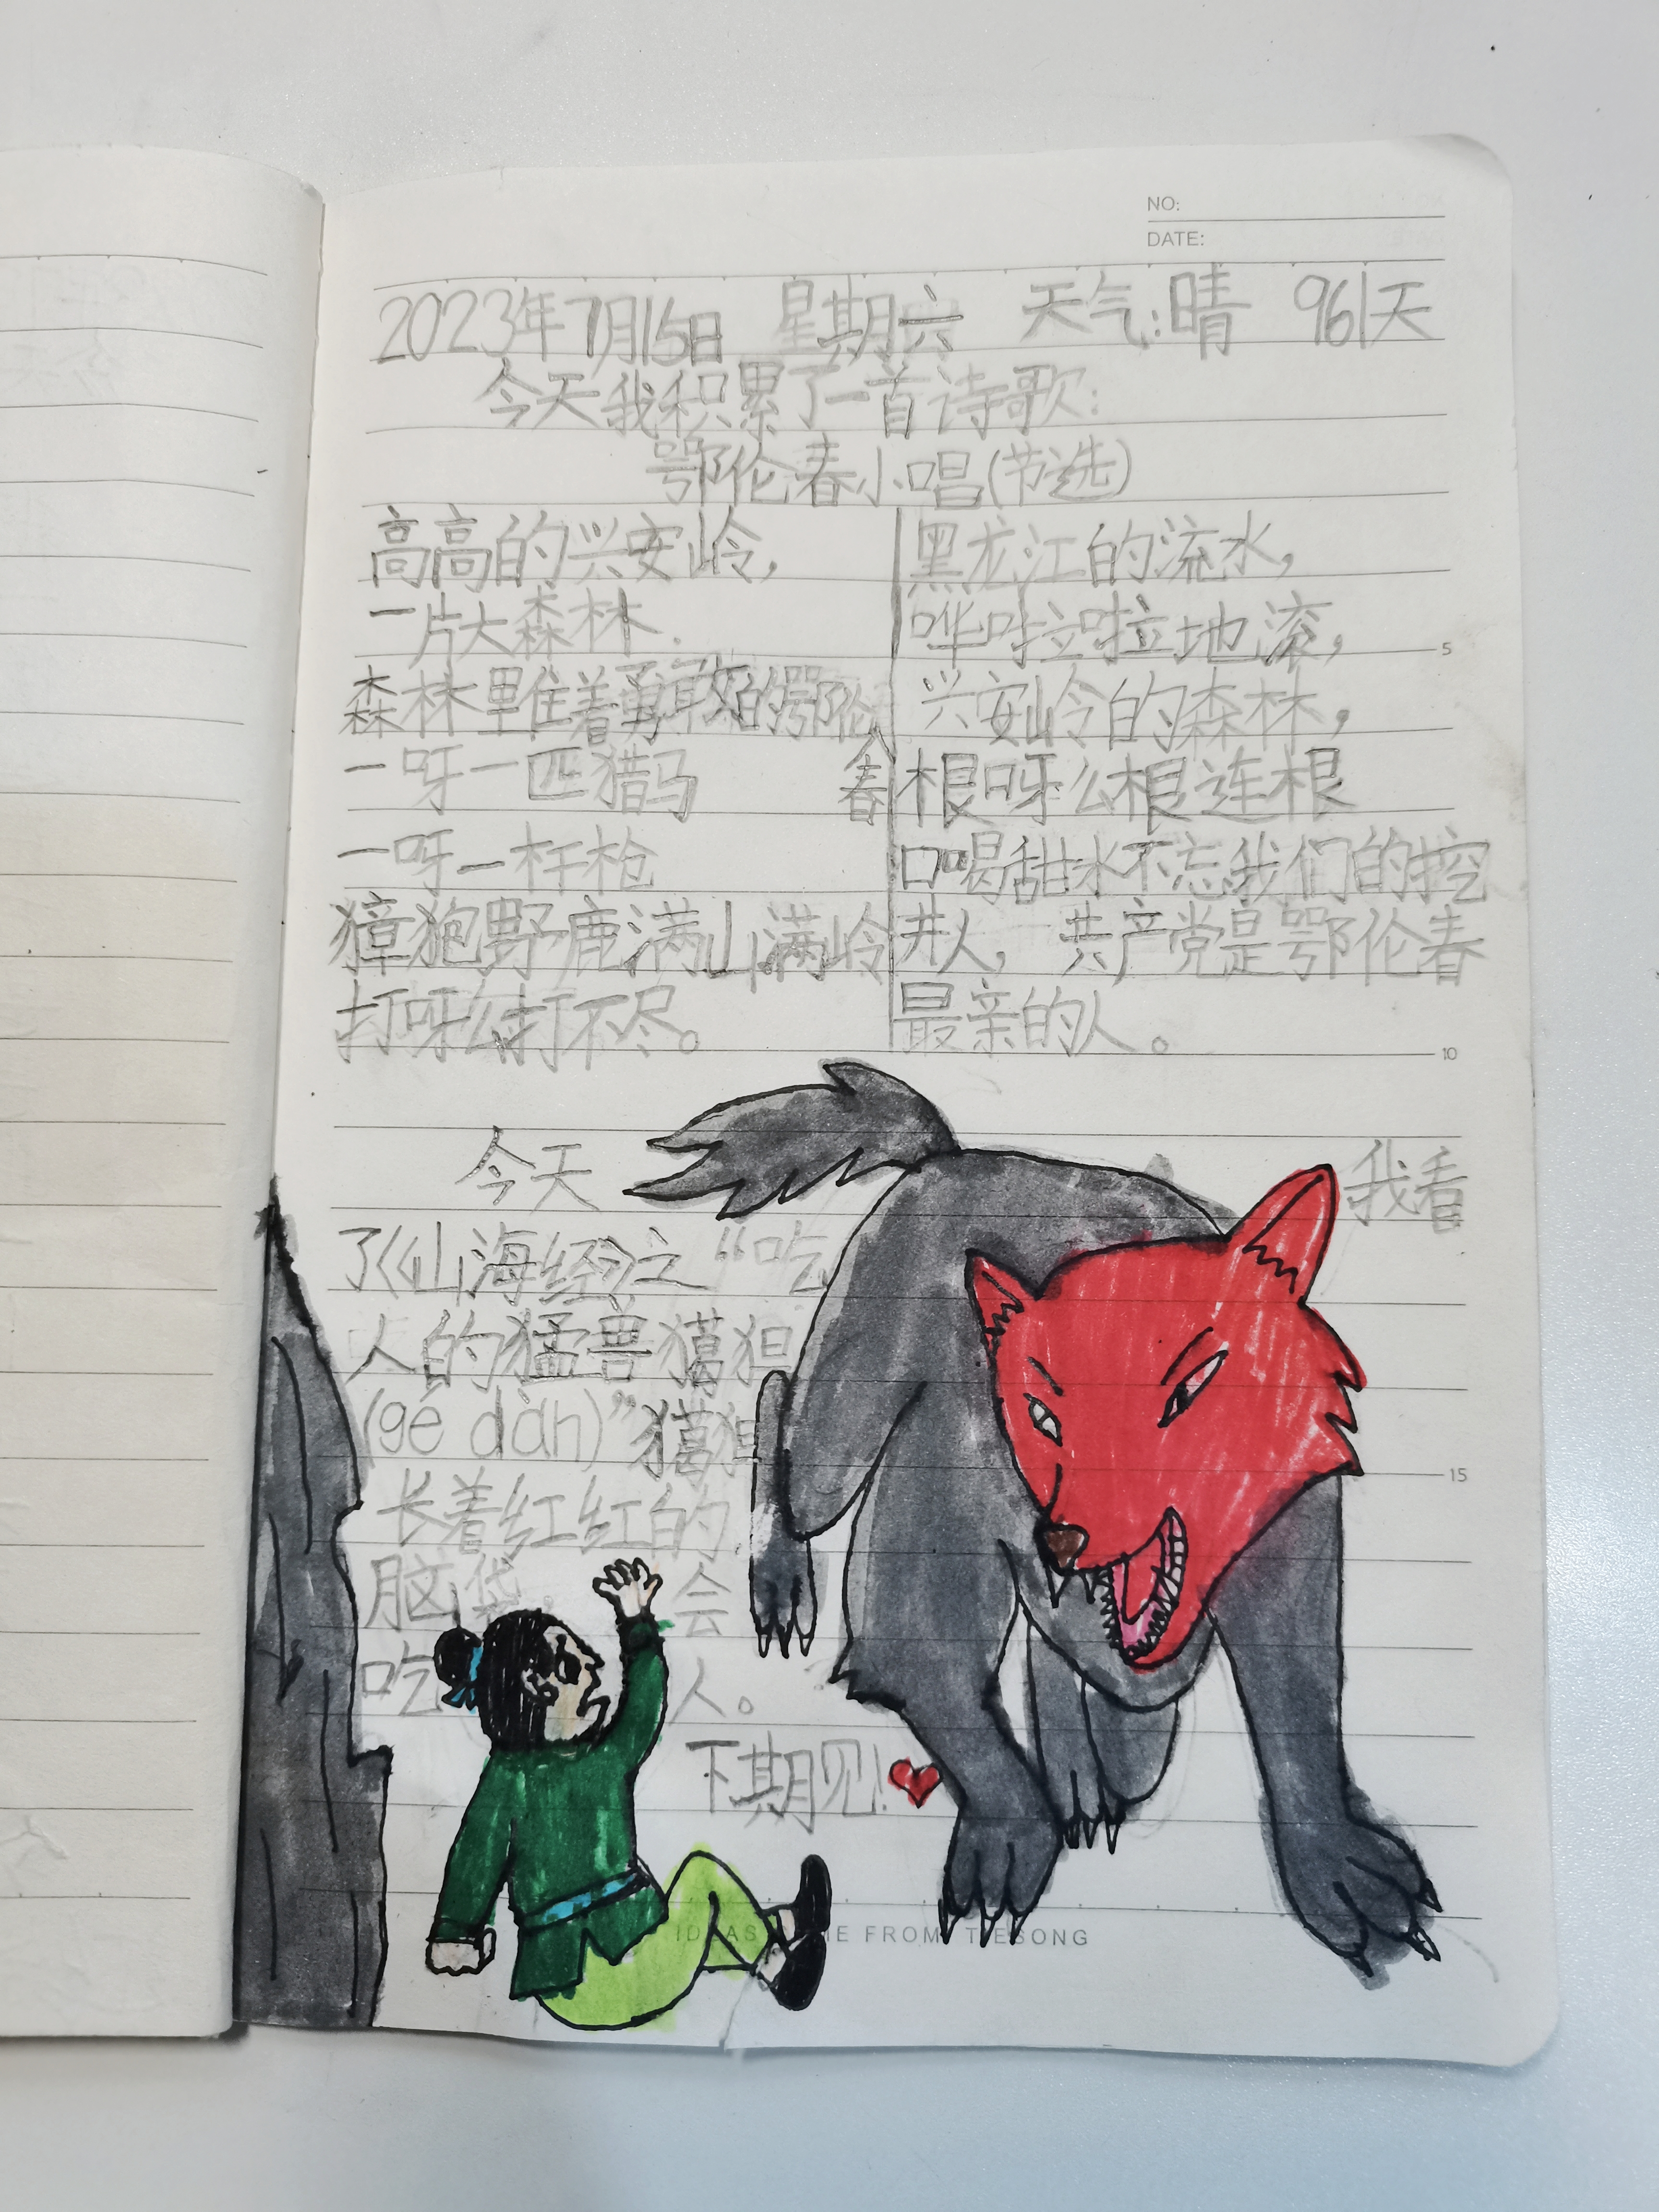 NO:
DATE:
2023年7月15日 星期六 天气:晴 961天
今天我积累了一首诗歌:
鄂伦春小唱(节选)
高高的兴安岭,
一片大森林.
森林里住着勇敢的鄂伦
春
一呀一匹猎马
一呀一杆枪
獐狍野鹿满山满岭
打呀么打不尽。
黑龙江的流水,
哗啦啦地滚,
兴安岭的森林,
根呀么根连根
口喝甜水不忘我们的挖
井人, 共产党是鄂伦春
最亲的人。
今天我看
了《山海经》之“吃
人的猛兽猲狙
(gé dàn)”猲狙
长着红红的
脑袋, 会
吃人。
下期见!
5
10
15
FROM